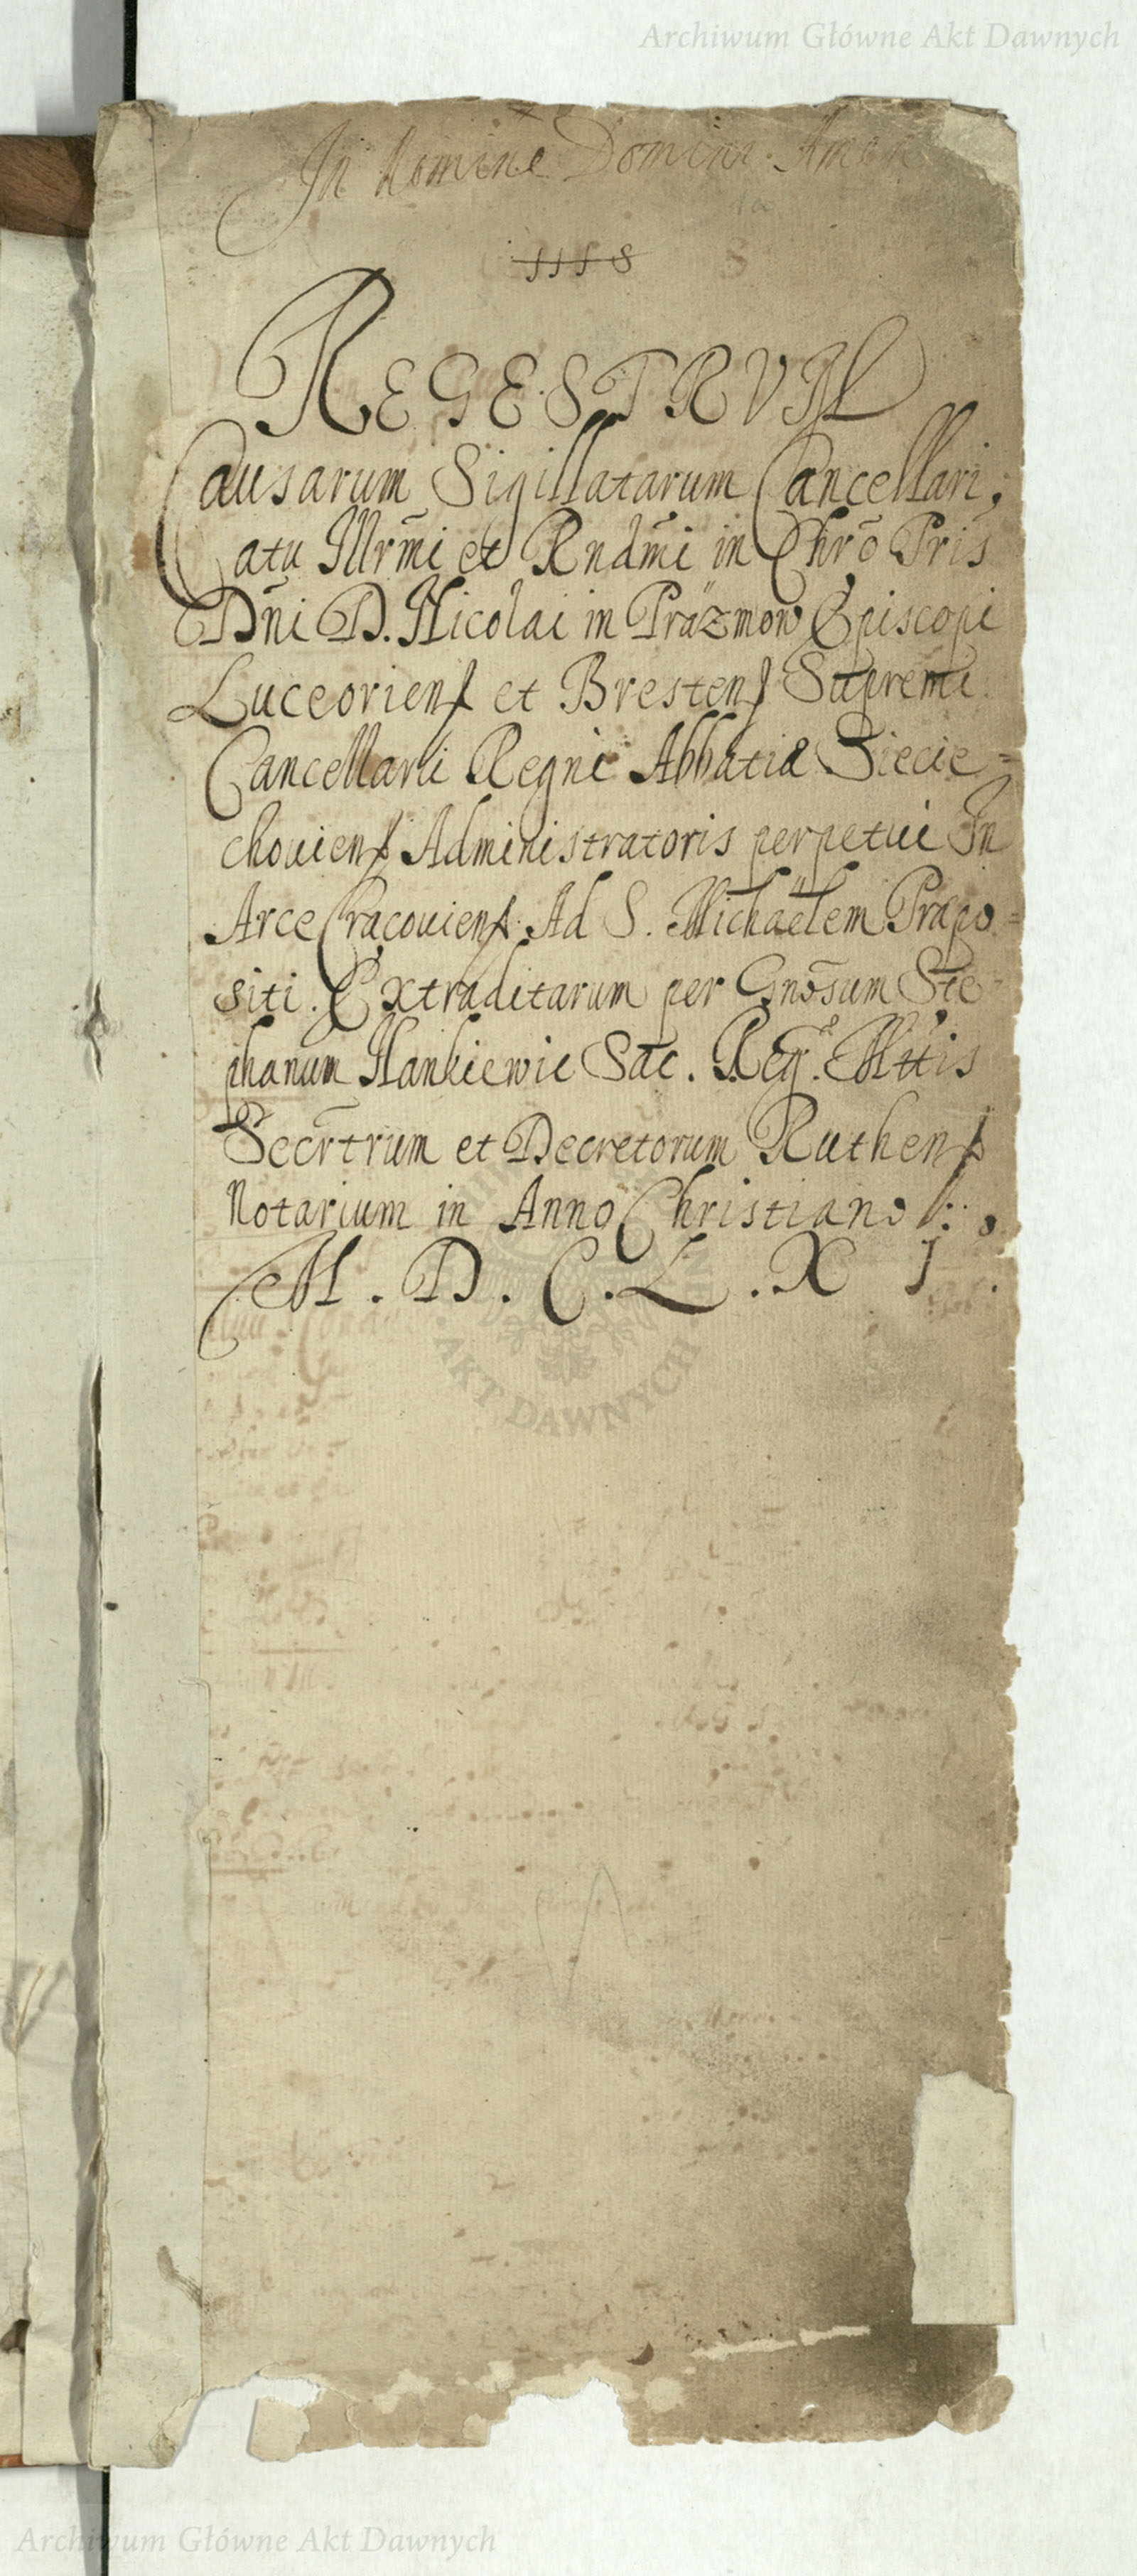 Archiwum Główne Akt Dawnych
In Nomine Domini Amen
1118
REGESTRVM
Causarum Sigillatarum Cancellari,
atu Illrm̃i et Rndm̃i in Chrõ Pris
Dñi D. Nicolai in Präzmow Episcopi
Luceoriens et Brestens Supremi
Cancellarii Regni Abbatiæ Siecie=
chouiens Administratoris perpetui In
Arce Cracouiens Ad S. Michaëlem Præpo=
siti. Extraditarum per Gnõsum Ste=
phanum Hankiewic Sac. Reg. Mttis
Secrt̃rium et Decretorum Ruthens
Notarium in Anno Christiano
M. D. C. L. X I.
AKT DAWNYCH
Archiwum Główne Akt Dawnych